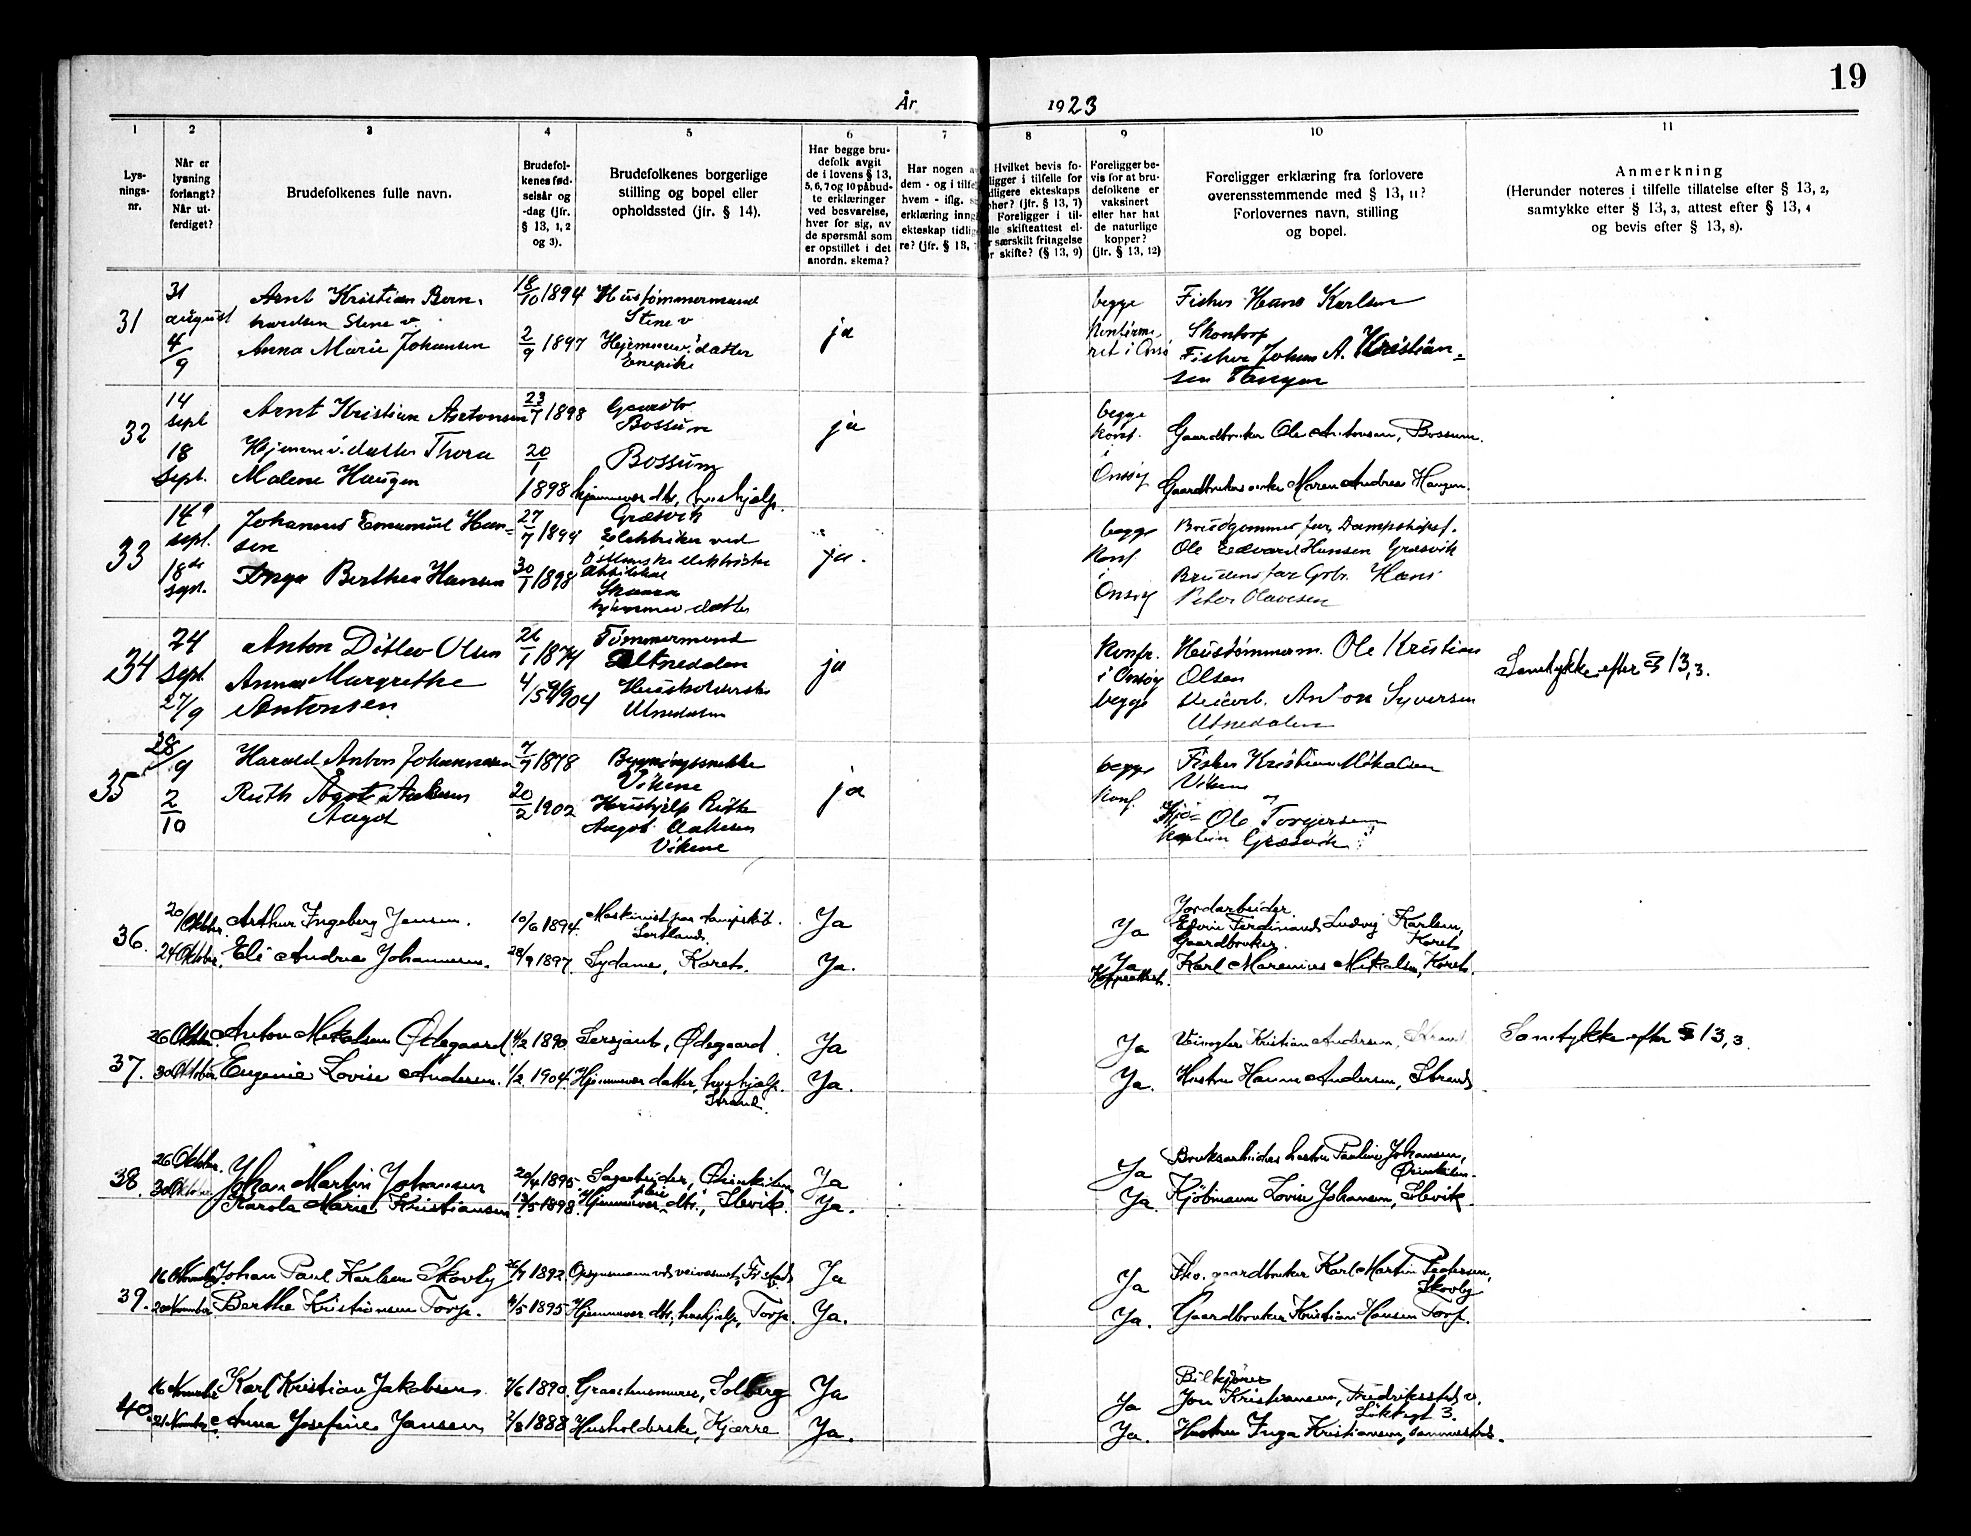 19
År 1923
1 2 3 4 5 6 7 8 9 10 11
Lys-
nings-
nr.
Når er
lysning
forlangt?
Når ut-
ferdiget?
Brudefolkenes fulle navn.
Brudefol-
kenes fød-
selsår og
-dag (jfr.
§ 13, 1, 2
og 3).
Brudefolkenes borgerlige
stilling og bopel eller
opholdssted (jfr. § 14).
Har begge bru-
defolk avgit
de i lovens § 13,
5, 6, 7 og 10 påbud-
te erklæringer
ved besvarelse,
hver for sig, av
de spørsmål som
er opstillet i det
anordn. skema?
Har nogen
dem - og i
hvem - iflg.
erklæring
ekteskap
re? (jfr. § 13,
Hvilket bevis fo-
ligger i tilfelle for
ekteskaps
(jfr. § 13, 7)
Foreligger i til-
skifteattest el-
særskilt fritagelse
skifte? (§ 13, 9)
Foreligger be-
vis for at bru-
defolkene er
vaksinert
eller har hat
de naturlige
kopper?
(jfr. § 13, 12)
Foreligger erklæring fra forlovere
overensstemmende med § 13, 11?
Forlovernes navn, stilling
og bopel.
Anmerkning
(Herunder noteres i tilfelle tillatelse efter § 13, 2,
samtykke efter § 13, 3, attest efter § 13, 4
og bevis efter § 13, 8).
31
31
august
4/9
Arnt Kristian Bern-
hardsen Stene v.
Anna Marie Johansen
18/10 1894
2/9 1897
Hustømmermand
Stene v
Hjemmev. datter
ja
begge
i Onsø
Fisker Hans Karlsen
Fisker Johan A. Kristian-
sen Tangen
32
14
sept
18
sept.
Arnt Kristian Antonsen
Hjemmev. datter Thora
Malene Haugen
23/7 1898
20/1
1898
Gaardbr
Bossum
Bossum
hjemmev dtr, hushjelp.
ja
begge
konf.
i
Onsøy
Gaardbruker Ole Antonsen, Bossum.
Gaardbruker enke Maren Andrea Haugen.
33
14
sept.
18de
sept.
Johannes Emanuel Han-
sen
Inga Berthea Hansen
27/7 1894
30/1 1898
Græsvik
Elektriker ved
elektriske
hjemmev. datter
ja.
begge
Konf.
i
Onsøy
Brudgommens far, Dampskipsf.
Ole Edvard Hansen Græsvik
Brudens far Gbr. Hans
Peter Olavesen
34
24
sept.
27/9
Anton Ditlev Olsen
Anna Margrethe
Antonsen
26/1 1874
4/5 1904
Tømmermand
Utnedalen
Husholderske
Utnedalen
ja
Konfr.
i Onsøy
begge
Hustømmerm. Ole Kristian
Olsen
Anton Syversen
Utnedalen
Samtykke efter § 13, 3.
35
28/9
2/10
Harald Anton Johannessen
Ruth Ågot
Aagot
7/9 1878
20/2 1902
Bygningssnekker
Vikene
Hushjelp Ruth
Aagot
Vikene
ja
begge
Konf.
Fisker Kristian Mikalsen
Vikene
og
Ole Torgersen
Græsvik
36.
20/Oktbr.
24 Oktober.
Arthur Ingeberg Jensen.
Eli Andrea Johannesen.
10/6 1894.
28/9 1897.
Maskinist paa dampskib.
Sydame, Koret.
Ja
Ja.
Ja
Ja
Koppeattest.
Jordarbeider.
Edvin Ferdinand Ludvig Karlsen,
Koret
Gaardbruker.
Karl Marenius Mikalsen, Koret.
37.
26 Oktbr.
30 Oktober.
Anton Mikalsen Ødegaard
Eugenie Lovise Andersen.
14/2 1890.
1/2 1904.
Sersjant, Ødegaard.
Hjemmevær datter, hushjelp.
Strand.
Ja
Ja.
Ja
Ja.
Kristian Andersen, Strand
Hustru Hanna Andersen, Strand.
Samtykke efter § 13, 3.
38.
26 Oktober.
30 Oktober
Johan Martin Johansen
Karola Marie Kristiansen
20/4 1895
13/5 1898.
Sagarbeider, Ørinkilen
Hjemmevær. dtr., Slevik.
Ja
Ja.
Ja
Ja.
Bruksarbeiders hustru Pauline Johansen,
Ørinkilen.
Kjöbmann Lovise Johansen, Slevik.
39.
16 November
20 November
Johan Paul Karlsen Skovly
Berthe Kristiansen Torp.
26/7 1892.
4/5 1895
Opsynsmann ved veivæsenet,
Hjemmevær dtr., hushjelp, Torp.
Ja
Ja.
Ja
Ja.
Fho. gaardbruker Karl Martin Pedersen,
Skovly
Gaardbruker Kristian Hansen Torp.
40.
16 November
21 November
Karl Kristian Jakobsen
Anna Josefine Jansen
7/6 1890.
7/8 1888
Graastensmurer, Solberg
Husholderske, Kjærre
Ja
Ja.
Ja
Ja.
Bilkjörer
Jon Kristiansen, Fredriksstad v.
Hustru Inga Kristiansen, sammesteds.